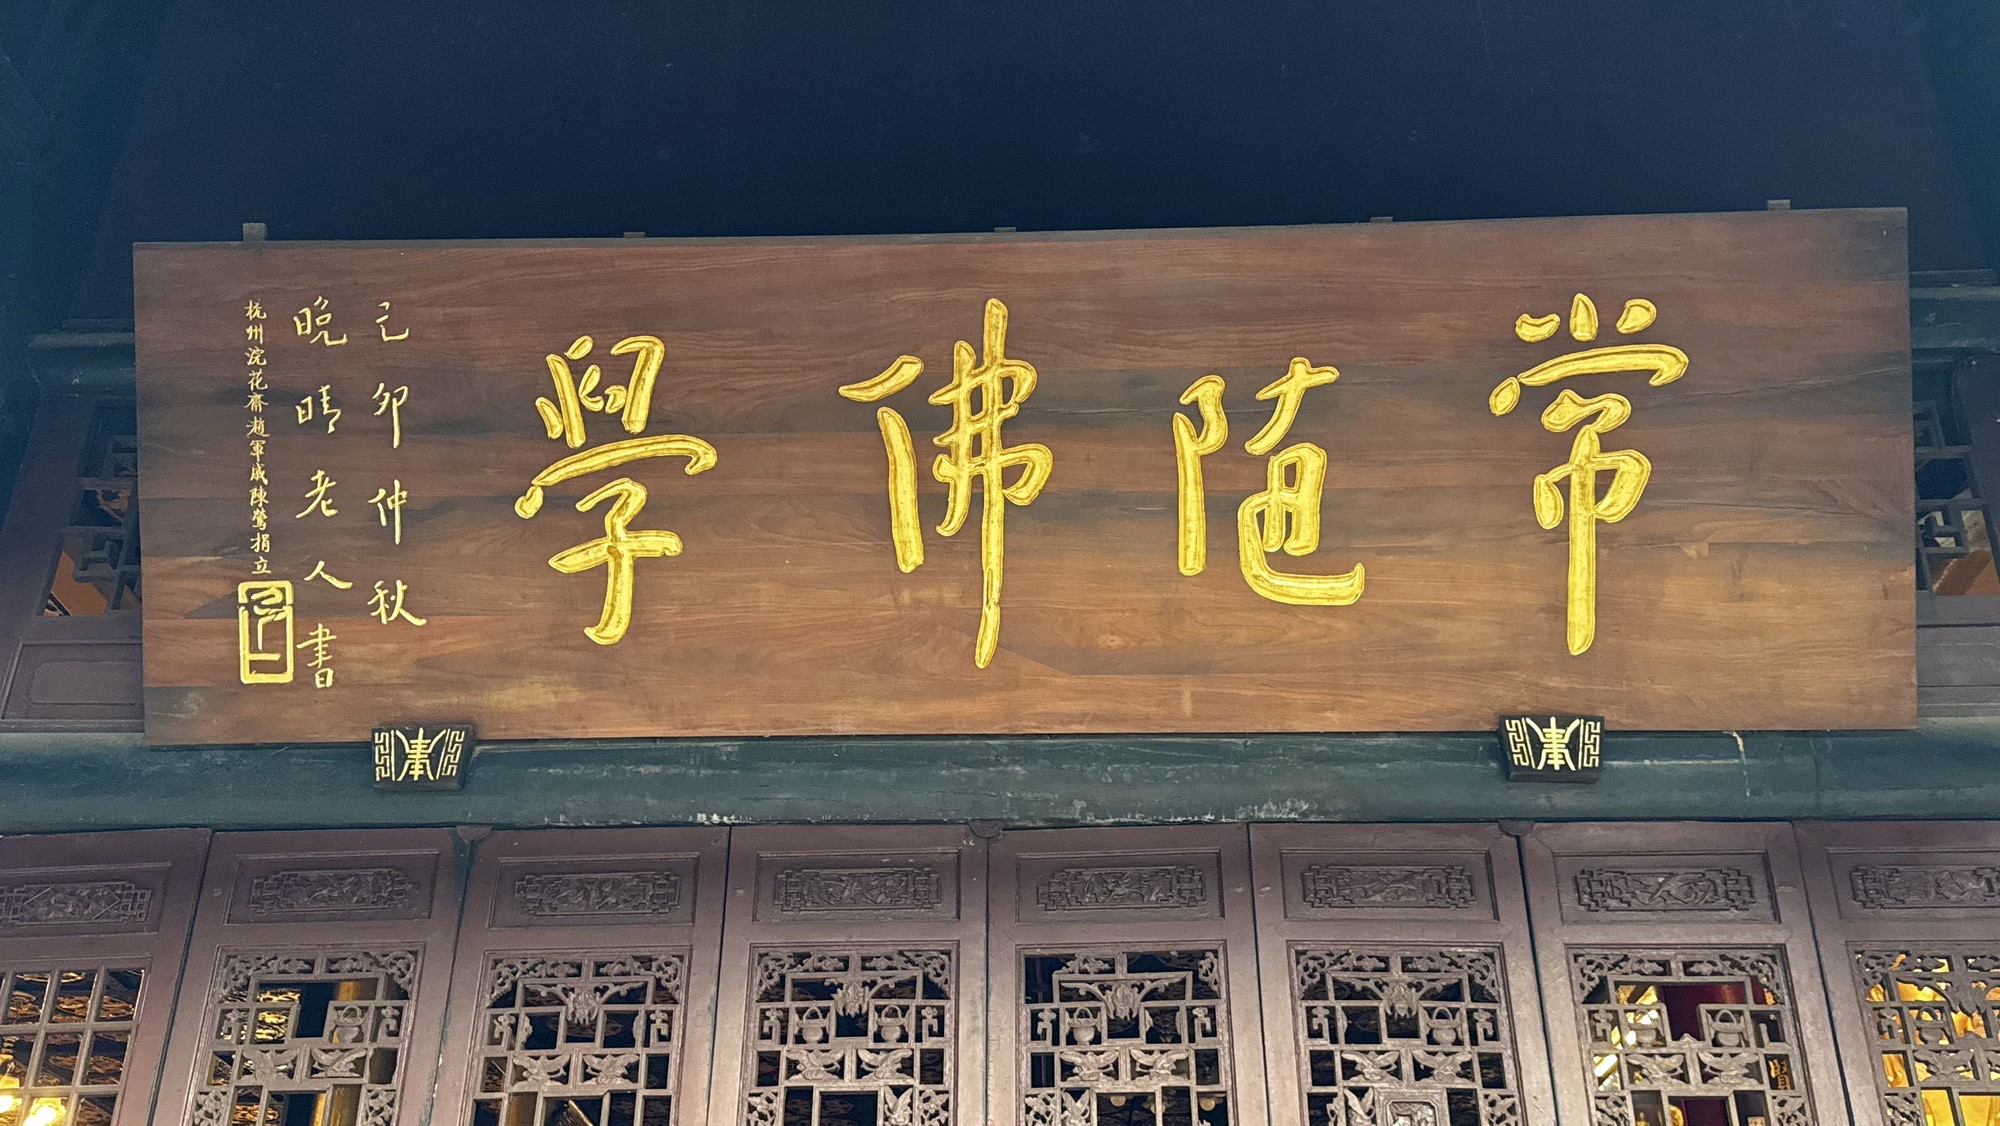 常隨佛學
己卯仲秋
晚晴老人書
杭州浣花齋趙軍戚陳鶯捐立
奉
奉